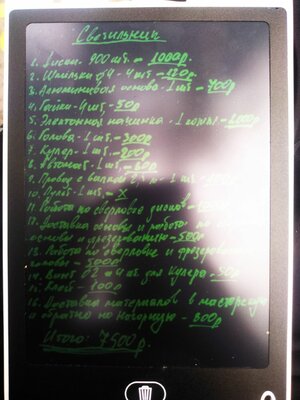 Светильник
1. Диски. 900 шт. - 1000р.
2. Шпилька 4 - 4 шт - 120р
3. Алюминиевая основа - 1 шт - 700р
4. Гайки - 4 шт - 50р
5. Электронная начинка - 1 компл -
6. Голова - 1 шт. - 300р
7. Кулер - 1 шт - 200р
8. - 1 шт. -
9. Провод с вилкой - 1 шт -
10. 1 шт. - X
11. Работа по сверловке дисков -
12. Доставка основы и работа по
основы и фрезерованию - 500р
13. Работа по сверловке и фрезеровке
головы - 500р
14. Винт 2 4 шт для кулера - 50р
15. Клей - 100р
16. Доставка материалов в мастерскую
и обратно на - 300р
Итого: 7500р.